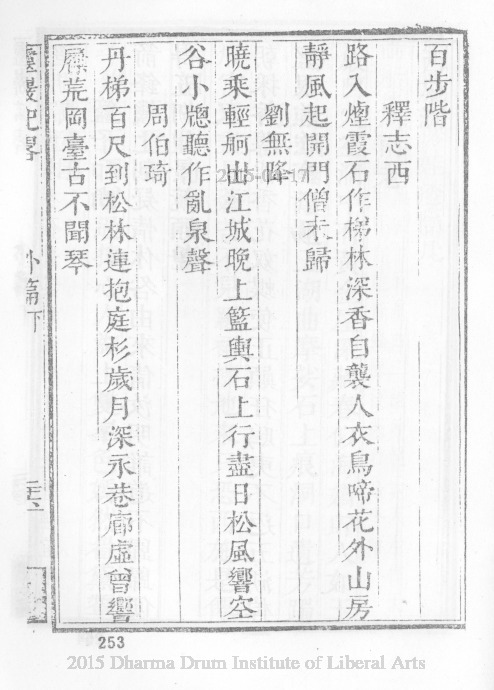 百步階
釋志西
路入煙霞石作梯林深香自襲人衣鳥啼花外山房
靜風起開門僧未歸
劉無降
曉乘輕舸出江城晚上籃輿石上行盡日松風響空
谷小牕聽作亂泉聲
周伯琦
丹梯百尺到松林連抱庭杉歲月深永巷廊虛曾響
屧荒岡臺古不聞琴
外篇下
2015-04-17
253
2015 Dharma Drum Institute of Liberal Arts